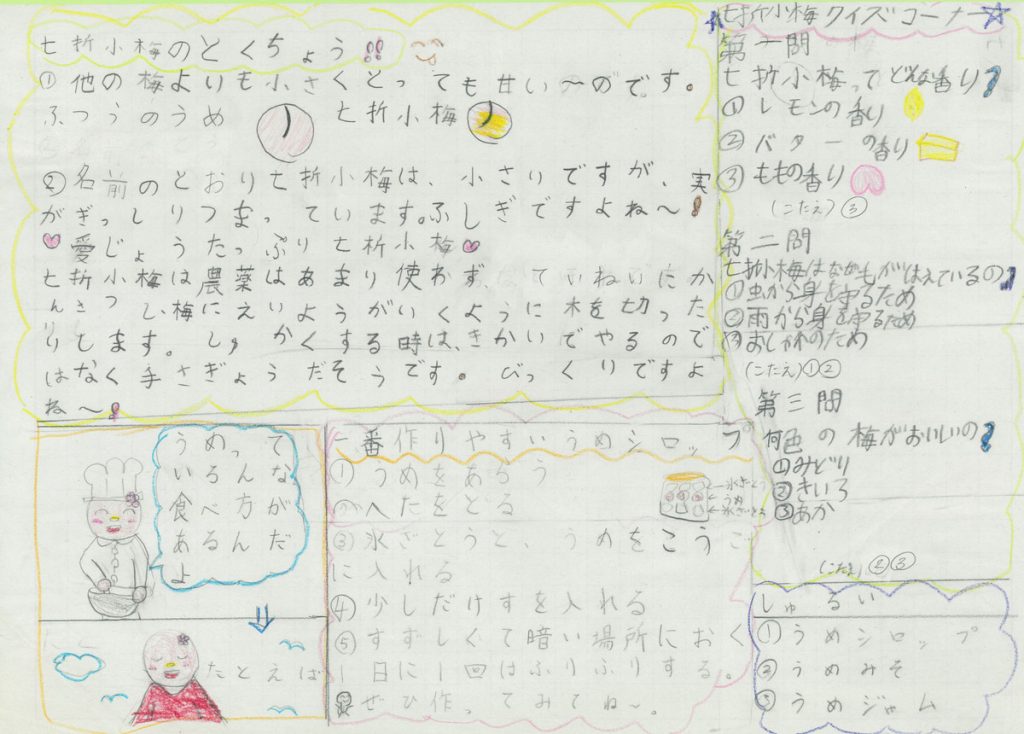 七折小梅のとくちょう!!
①他の梅よりも小さくとっても甘い〜のです。
ふつうのうめ 七折小梅
②名前のとおり七折小梅は、小さいですが、実
がぎっしりつまっています。ふしぎですよね〜!
愛じょうたっぷり七折小梅
七折小梅は農薬はあまり使わず、ていねいにか
んさつし、梅にえいようがいくように木を切った
りします。しゅうかくする時は、きかいでやるので
はなく手さぎょうだそうです。びっくりですよ
ね〜!
うめって
いろんな
食べ方が
あるんだ
よ
たとえば
一番作りやすいうめシロップ
①うめをあらう
②へたをとる
③氷ざとうと、うめをこうご
に入れる
④少しだけすを入れる
⑤すずしくて暗い場所におく
1日に1回はふりふりする。
ぜひ作ってみてね〜。
氷ざとう
うめ
氷ざとう
七折小梅クイズコーナー
第一問
七折小梅ってどんな香り?
①レモンの香り
②バターの香り
③ももの香り
(こたえ)③
第二問
七折小梅はなぜ がはえているの?
①虫から身を守るため
②雨から身を守るため
③おしゃれのため
(こたえ)①②
第三問
何色の梅がおいしいの?
①みどり
②きいろ
③あか
(こたえ)②③
しゅるい
①うめシロップ
②うめみそ
③うめジャム